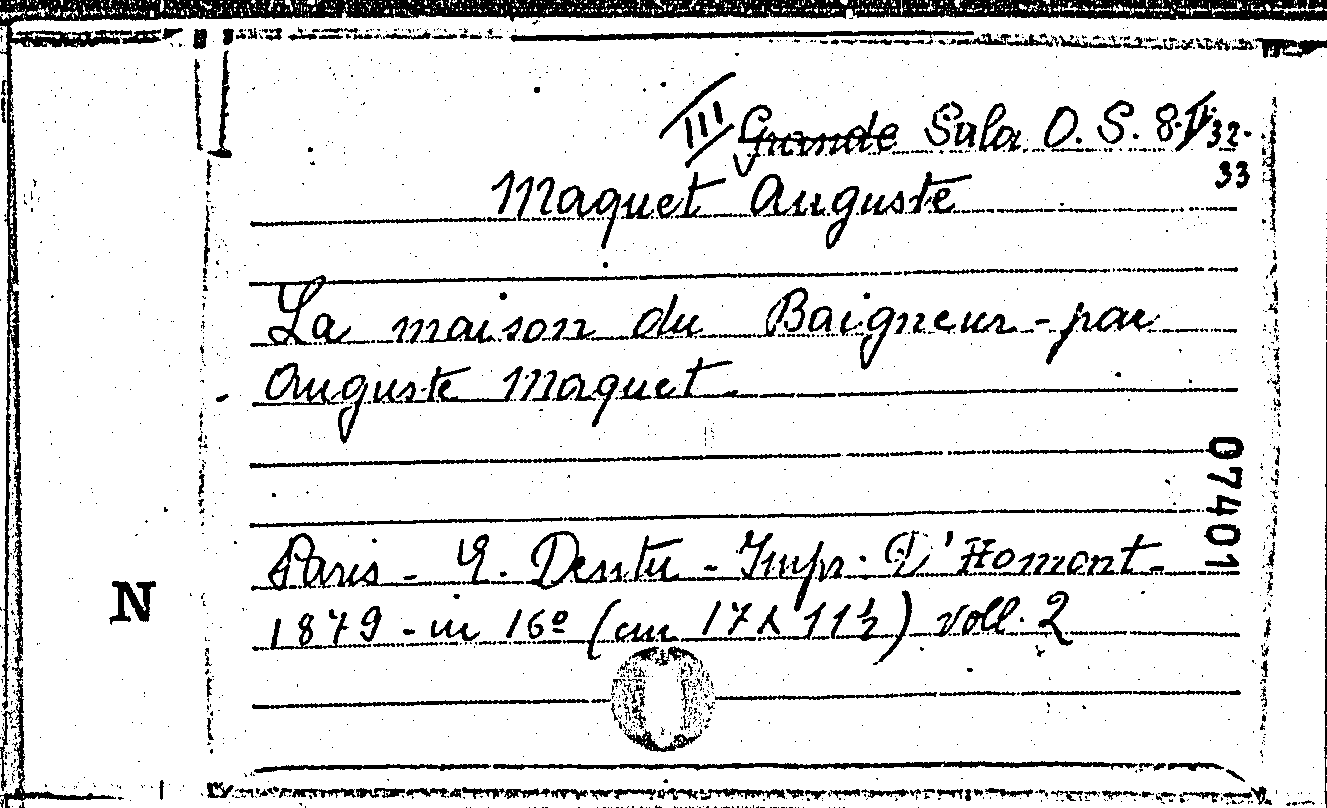 III Grande Sala O. S. 8. V. 32-
33
Maquet Auguste
La maison du Baigneur - par
Auguste Maquet.
07401
Paris - E. Dentu - Imp. D'Homont -
1879 - in 16º (cm 17 x 11½) voll. 2
N